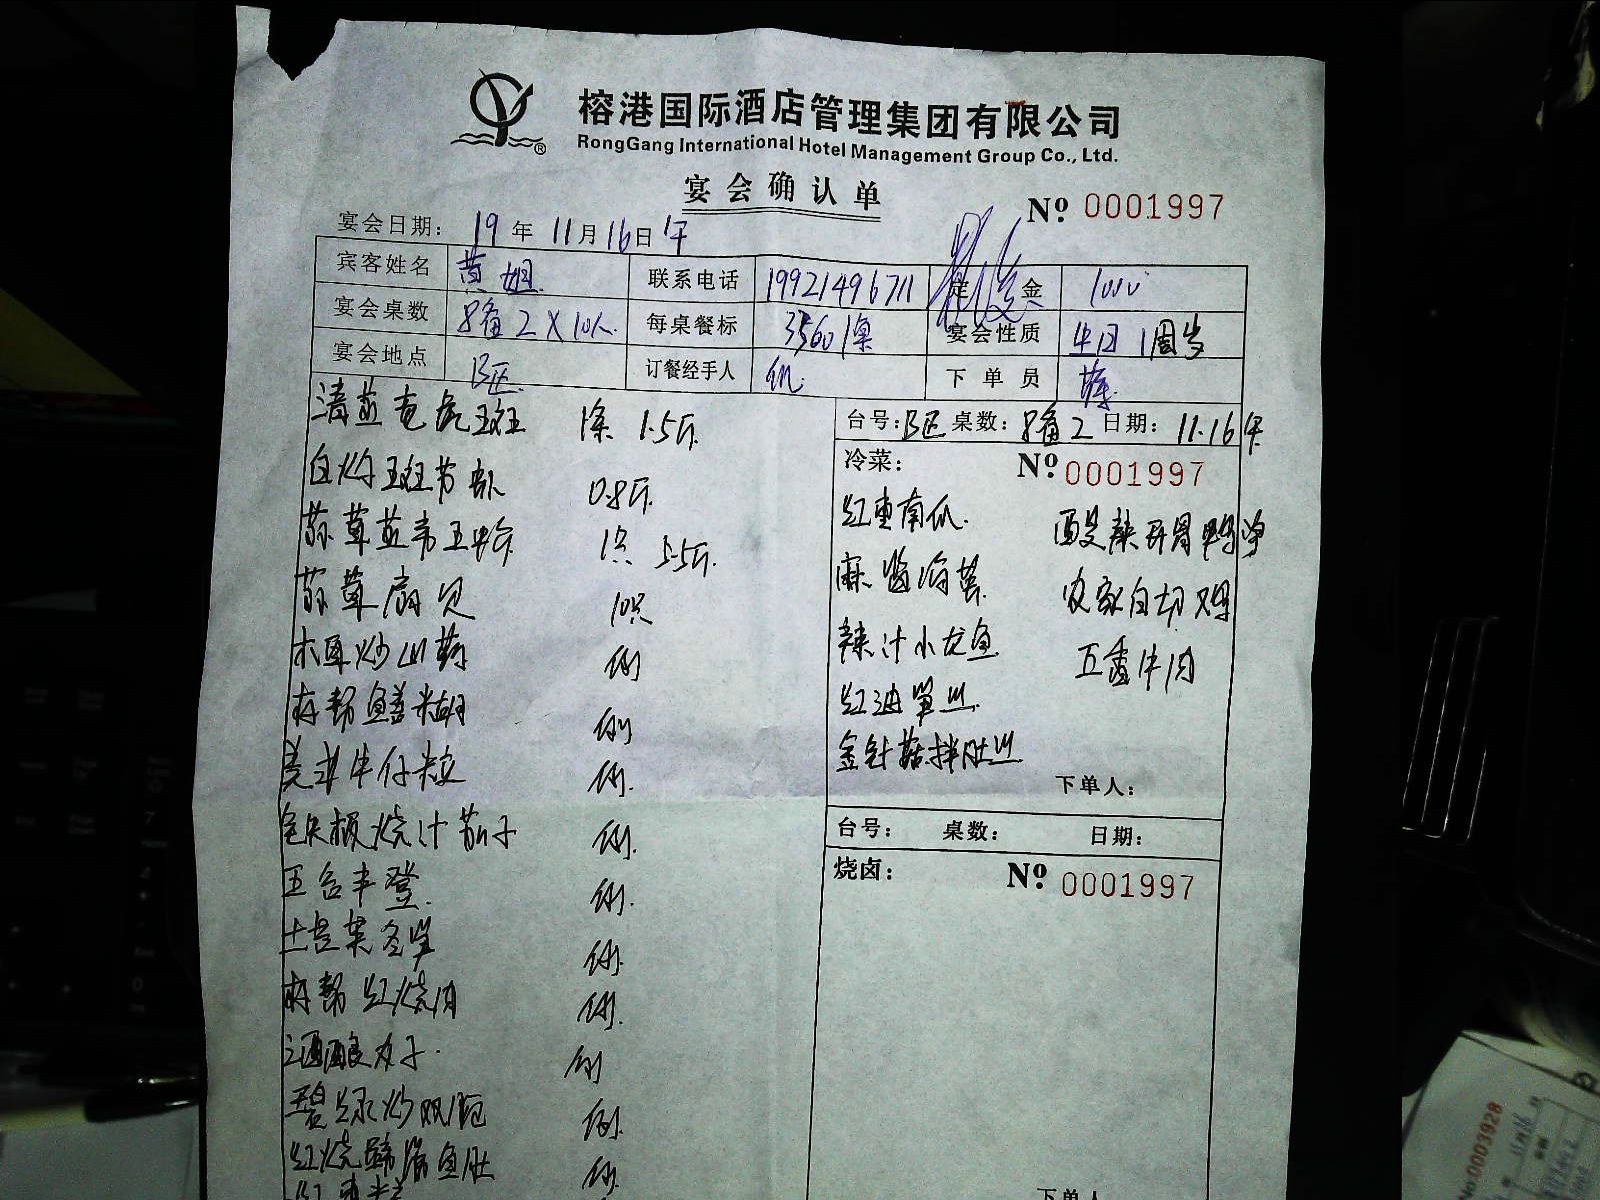 榕港国际酒店管理集团有限公司
RongGang International Hotel Management Group Co., Ltd.
宴会确认单
№ 0001997
宴会日期: 19年11月16日午
宾客姓名 黄姐 联系电话 19921496711 定金 1000
宴会桌数 8备2×10人 每桌餐标 3560/桌 宴会性质 生日1周岁
宴会地点 B区 订餐经手人 下单员
清蒸老虎斑 1条 1.5斤
白灼斑节虾 0.8斤
蒜茸蒸帝王蟹 1只 5.5斤
蒜茸扇贝 10只
木耳炒山药 例
本帮鳝糊 例
美式牛仔粒 例
铁板烧汁茄子 例
五谷丰登 例
土豆菜冬笋 例
本帮红烧肉 例
酒酿丸子 例
碧绿炒双脆 例
红烧蹄筋鱼肚 例
红枣
台号: B区 桌数: 8备2 日期: 11.16午
冷菜: № 0001997
红枣南瓜 酸辣开胃鸭胗
麻酱海蜇 农家白切鸡
辣汁小龙鱼 五香牛肉
红油笋丝
金针菇拌肚丝
下单人:
台号: 桌数: 日期:
烧卤: № 0001997
下单人
No0003928